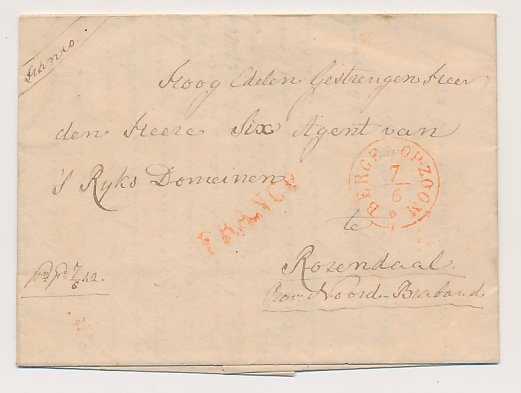 Franco.
Hoog Edelen Gestrengen Heer
den Heere Six Agent van
'S Ryks Domeinen
BERGEN-OP-ZOOM
7
6
FRANCO
te
Rosendaal
Prov: Noord-Braband
7/6 42.